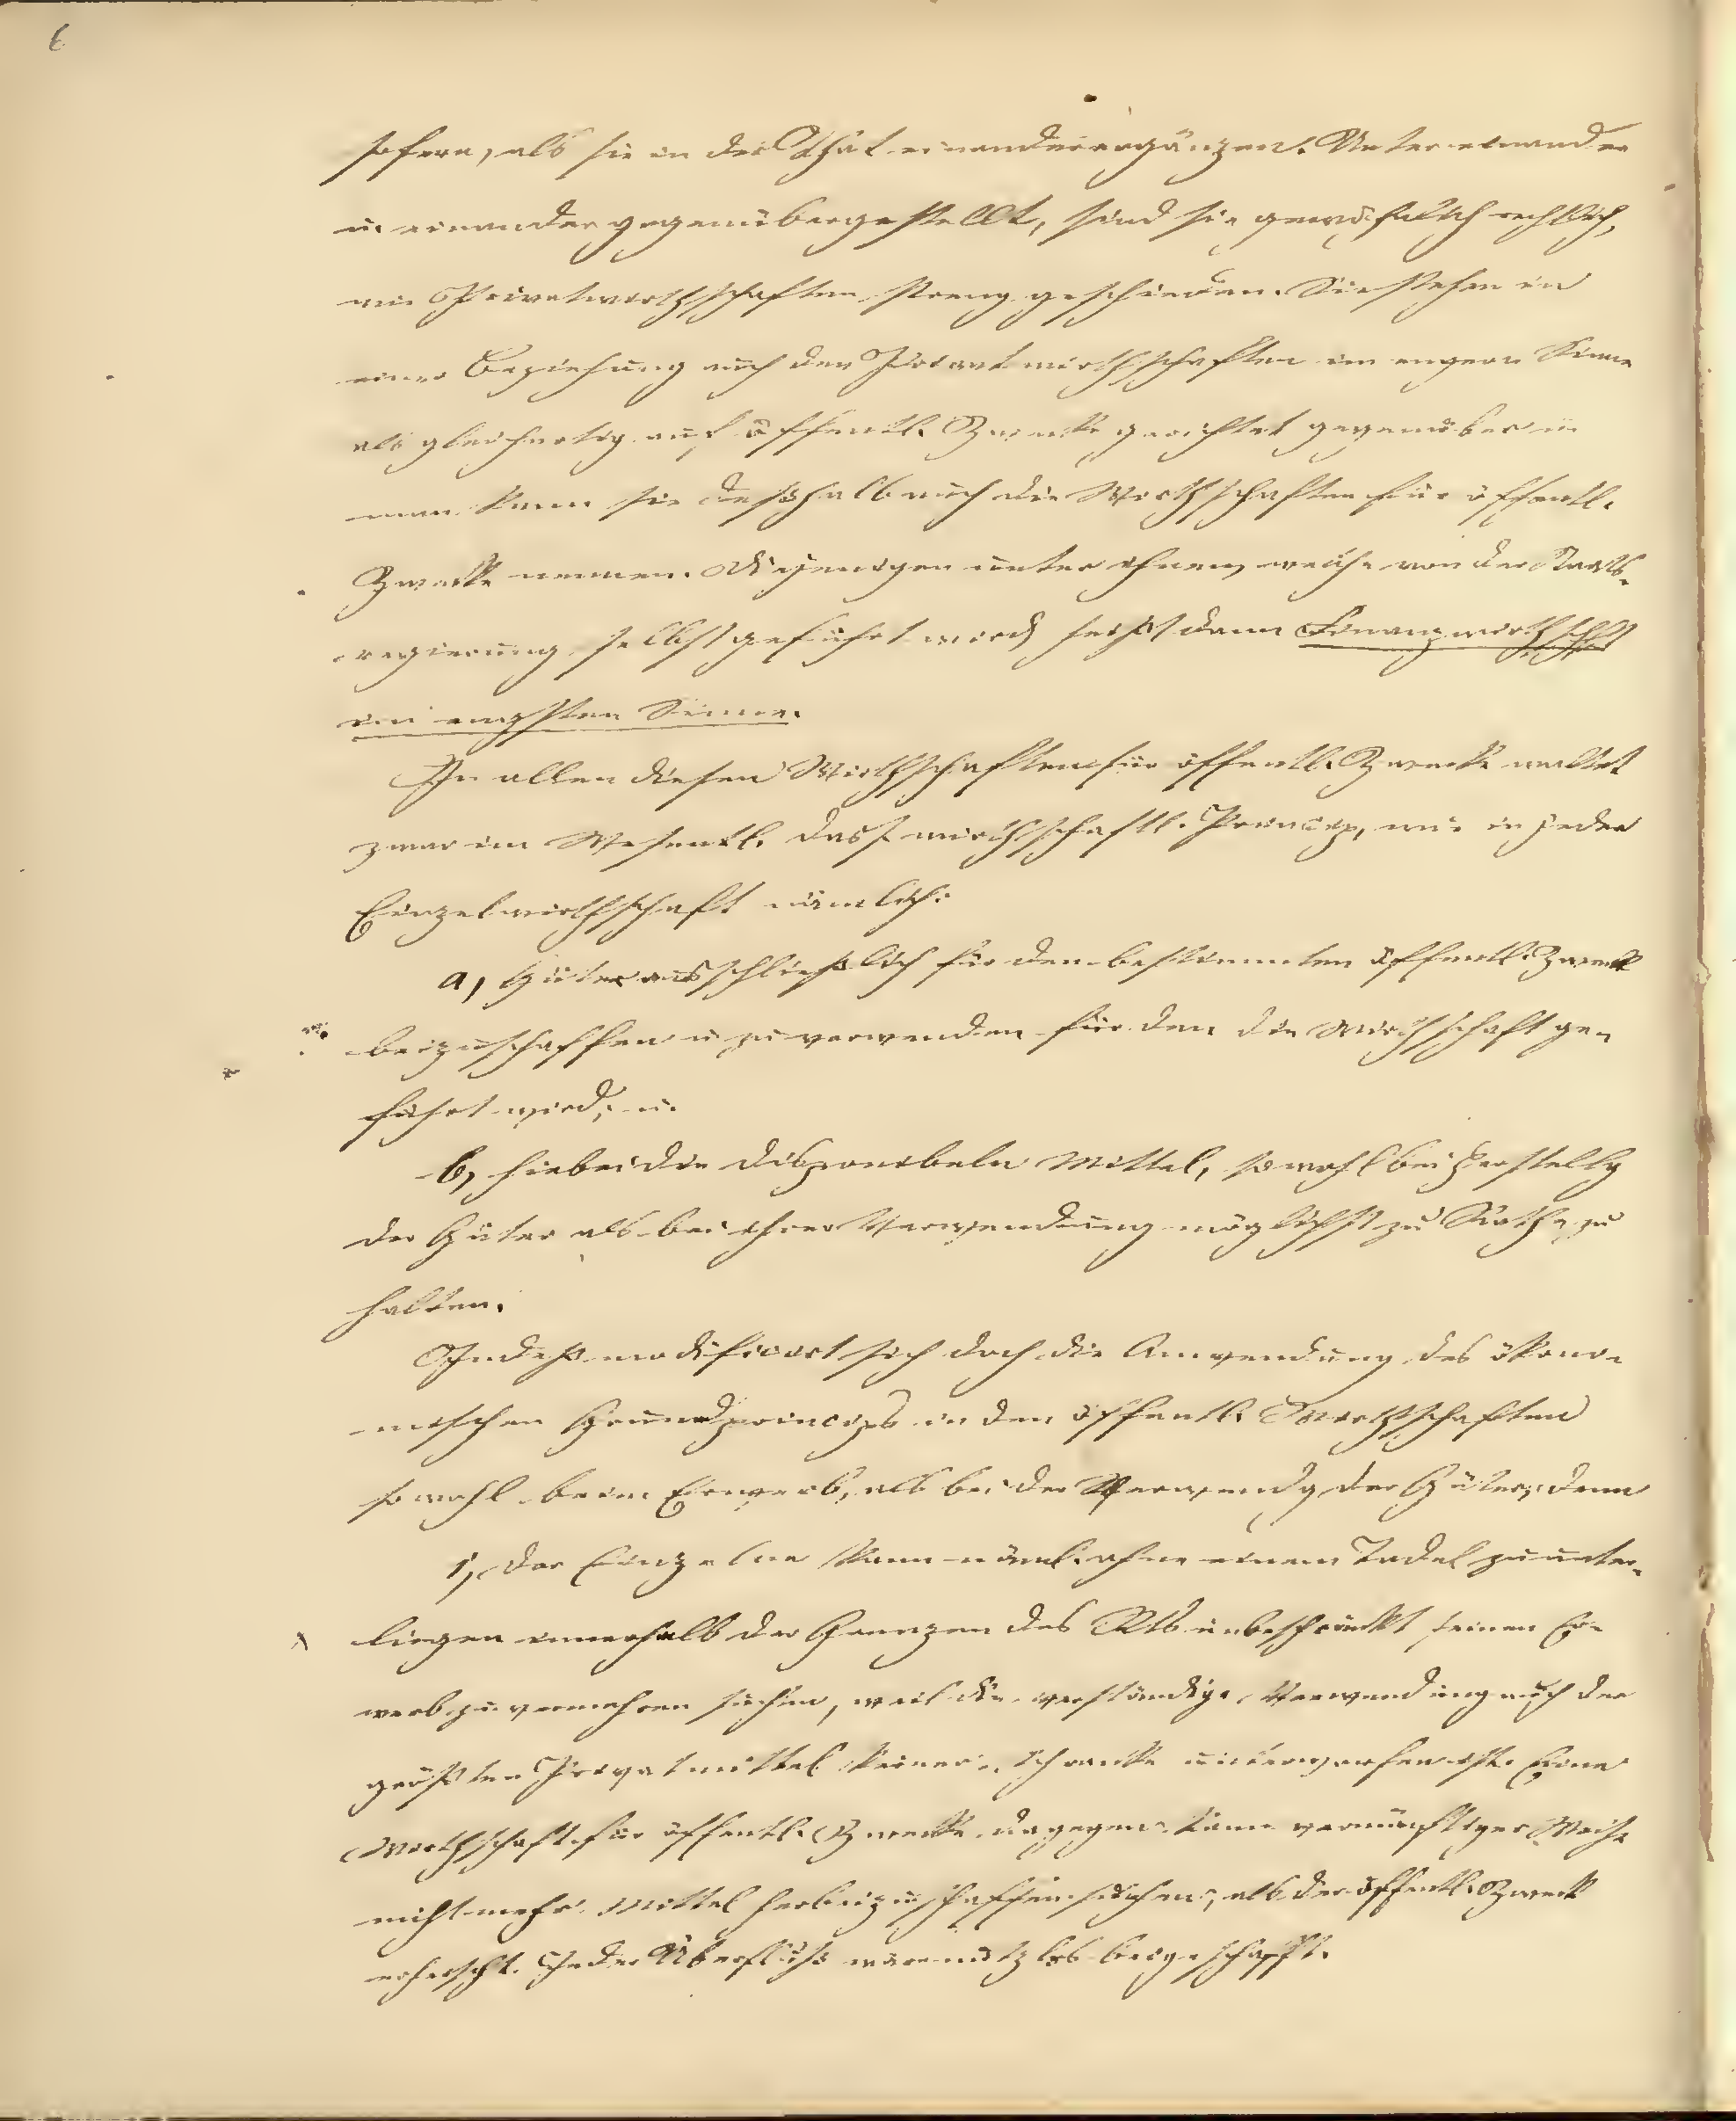 6
sofern, als sie in der That einander ergänzen. Unter einander
u. einander gegenübergestellt, sind sie gewöhnlich rechtlich,
wie Privatwirthschaften streng geschieden. Sie stehen in
einer Beziehung auch den Privatwirthschaften im engern Sinne
als gleichartig auf öffentl. Zwecke gerichtet gegenüber u
man kann sie deßhalb auch die Wirthschaften für öffentl.
Zwecke nennen. Diejenigen unter ihnen, welche von der Staats-
regierung selbst geführt wird, heißt dann Finanzwirthschft
im engsten Sinne.
In allen diesen Wirthschaften für öffentl. Zwecke waltet
zwar im Wesentl. dass. wirthschaftl. Princip, wie in jeder
Einzelwirthschaft nämlich:
a, Güter ausschließlich für den bestimmten öffentl. Zweck
beizuschaffen u zu verwenden für den die Wirthschaft ge-
führt wird; u.
b, hiebei die disponibeln Mittel, sowohl bei Herstellg
der Güter als bei ihrer Verwendung möglichst zu Rathe zu
halten.
Indeß modificirt sich doch die Anwendung des ökono-
mischen Grundprincips in den öffentl. Wirthschaften
sowohl beim Erwerb, als bei der Verwendg der Güter; denn
1, der Einzelne kann näml. ohne einem Tadel zu unter-
liegen innerhalb der Grenzen des Rts unbeschränkt seinen Er-
werb zu vermehren suchen, weil die verständige Verwendung auch der
größten Privatmittel keiner Schranke unterworfen ist. Eine
Wirthschaft für öffentl. Zwecke dagegen kann vernünftiger Weise
nicht mehr Mittel herbeizuschaffen suchen, als der öffentl. Zweck
erheischt. Jeder Überfluß wäre nutzlos beigeschafft.